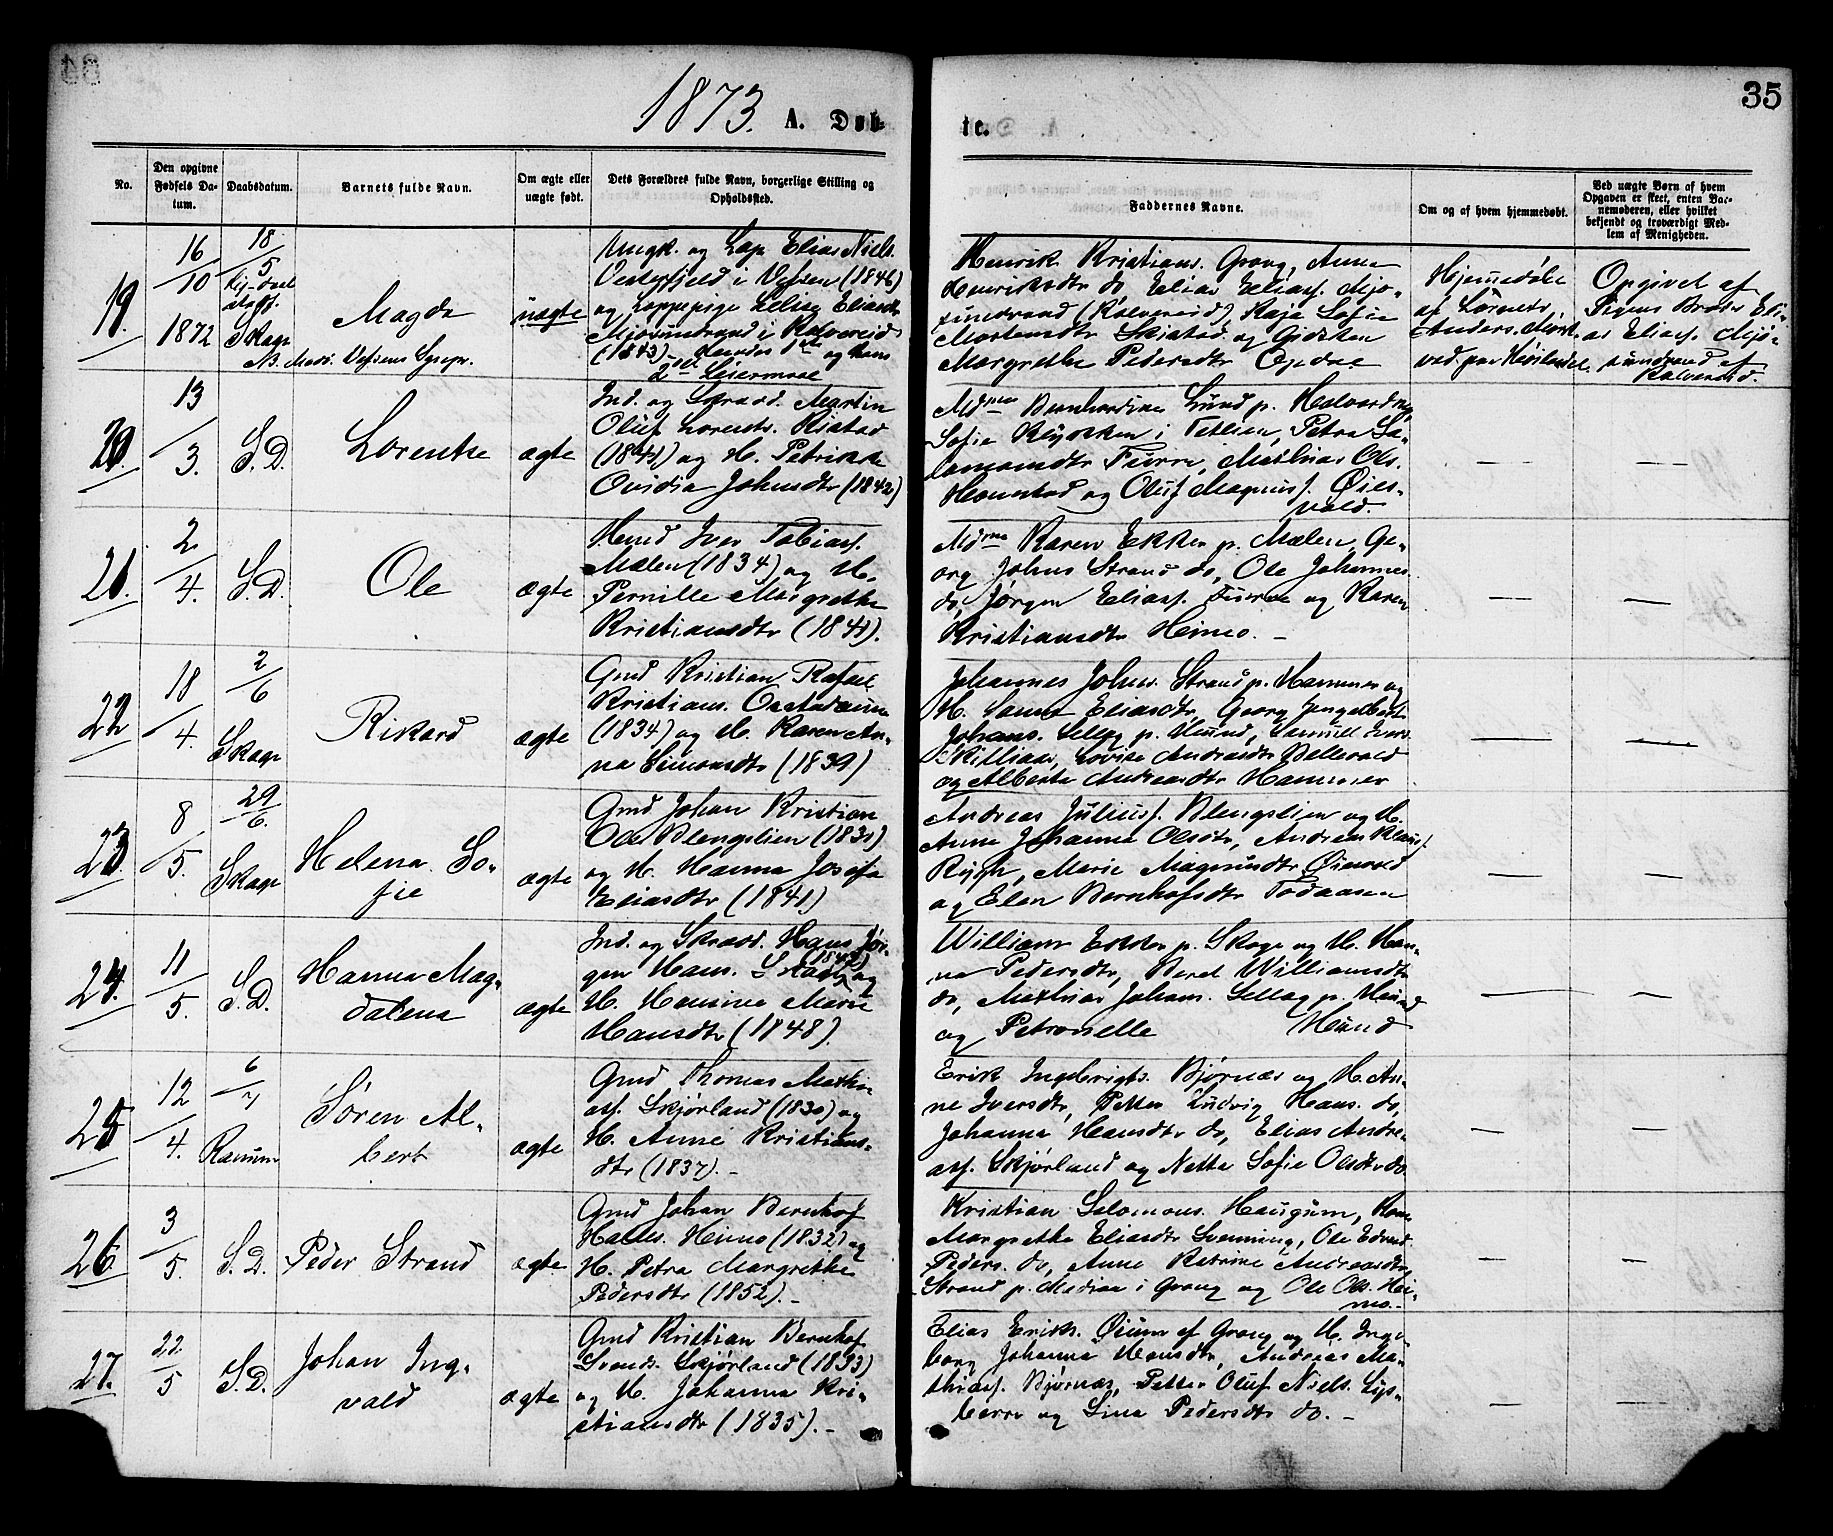 1873. A. Døb-
te.
35
No.
Den opgivne Fødsels Da-tum.
Daabsdatum.
Barnets fulde Navn.
Om ægte eller uægte født.
Dets Forældres fulde Navn, borgerlige Stilling og Opholdssted.
Faddernes Navne.
Om og af hvem hjemmedøbt.
Ved uægte Børn af hvem Opgaven er skeet, enten Bar-nemoderen, eller hvilket bekjendt og troværdigt Med-lem af Menigheden.
19.
16/10 1872
18/5
Skage
Magda
uægte
Ungk. og Lap Elias Niels.
Vesterfjeld i Vefsen (1846)
og Lappepige Elise Eliasdtr
i Kolvereid
(1843)
2den Leiermaal
Henrik Kristians. Grong, Anna
Henriksdtr do, Elias Eliass. Mjo-
sundvand (Kolvereid), Kaja Sofie
Mortensdtr Skistad og Gidsken
Margrethe Pedersdtr Opdal
Hjemmedøbt
af Lorents
Anders.
Opgivet af
Pigens Broder Eli-
as Eliass. Mjø-
sundvand af
Kolvereid.
20.
13/3.
S.D.
Lorentse
ægte
Ind. og Skrædd. Martin
Oluf Lorents. Ristad
(1841) og H. Petrikke
Ovidia Johnsdtr (1842)
Mdme Bernhardine Lund p.
Sofie Klykken i Tetlien, Petra Sa-
lamonsdtr Furre, Mathias Ols.
og Oluf Magnuss. Øies-
vold.
21.
2/4.
S.D.
Ole
ægte
Huusmd Iver Tobiass.
Mælen (1834) og H.
Pernille Margrethe
Kristiansdtr (1841).
Mdme Karen Ekker p. Mælen, Ge-
org Johns. Strand do, Ole Johannes.
do, Jørgen Eliass. Furre og Karen
Kristiansdtr Heimo. -
22
18/4.
2/6
Skage
Rikard
ægte
Gmd Kristian Rafael
Kristians.
(1834) og H. Karen An-
na Simonsdtr (1839)
Johannes Johns. Strand p. Hammer og
H. Eliasdtr, Georg Engelbert
Johans. Selleg p. Hund, Samuel Ivers.
Lovise Andreasdtr Bellevold
og Alberte Andreasdtr Hammer
23.
8/5.
29/6.
Skage
Helena So-
fie
ægte
Gmd Johan Kristian
Ols. Blengslien (1831)
og H. Hanna Josefa
Eliasdtr (1841)
Andreas Juliuss. Blengslien og H.
Anne Johanna Olsdtr, Andreas Klaus.
Rygh, Marie Magnusdtr Øiesvold
og Elen Bernhofsdtr Tødaasen
24.
11/5.
S.D.
Hanna Mag-
dalena
ægte
Ind. og Skrædd. Hans Jør-
gen Hans. og
H. Hansine Marie
Hansdtr (1848).
William Ekker p. Skage og H. Han-
na Pedersdtr, Beret Williamsdtr
do, Mathias Johans. Selleg p. Hund
og Petronelle Hund
25
12/4.
6/7
Ranum
Søren Al-
bert
ægte
Gmd Thomas Mathi-
ass. Skjørland (1830) og
H. Anne Kristians-
dtr (1837). -
Erik Ingebrigts. Bjørnes og H. An-
ne Iversdtr, Petter Ludvig Hans. do,
Johanna Hansdtr do, Elias Andre-
ass. Skjørland og Netta Sofie Olsdtr do.
26.
3/5.
S.D.
Peder Strand
ægte
Gmd Johan Bernhof
Heimo (1832) og
H. Petra Margrethe
Pedersdtr (1852). -
Kristian Salomons. Haugum,
Margrethe Eliasdtr Svenning, Ole Edvard
Peders. do, Anne Katrine Andreasdtr
Strand p. Mediaa i Grong og Ole Ols. Hei-
mo. -
27.
22/5
S.D.
Johan Ing-
vald
ægte
Gmd Kristian Bernhof
Svends. Skjørland (1833)
og H. Johanna Kri-
stiansdtr (1835). -
Elias Eriks. Øium af Grong og H. Inge-
borg Johanna Hansdtr, Andreas Ma-
thiass. Bjørnes, Petter Oluf Niels. Lys-
berre og Lina Pedersdtr do. -